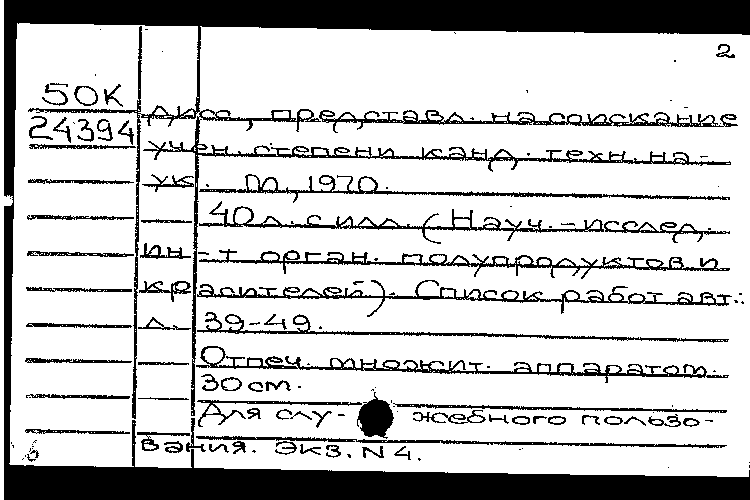 2
50К
24394
дисс, представл. на соискание
учен. степени канд. техн. на-
ук. М., 1970.
40 л. с илл. (Науч.-исслед.
ин-т орган. полупродуктов и
красителей). Список работ авт.:
л. 39-49.
Отпеч. множит. аппаратом.
30 cm.
Для слу- жебного пользо-
вания. Экз. N 4.